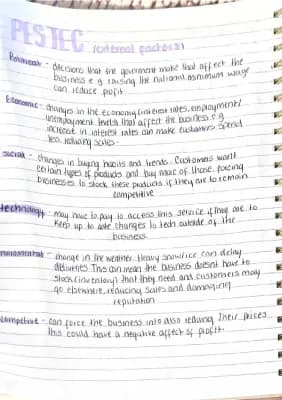 PESTEC
(external factors)
Political - decisions that the government make that affect the
business e.g raising the national minimum wage
can reduce profit.
Economic - changes in the economy (interest rates, employment/
unemployment levels) that affect the business e.g
increase in interest rates can make customers spend
less, reducing sales.
social - changes in buying habits and trends. Customers want
certain types of products and buy more of those, forcing
businesses to stock these products if they are to remain
competitive
technology - may have to pay to access this service if they are to
keep up to date changes to tech outside of the
business
environmental - change in the weather. Heavy snow/ice can delay
deliveries. This can mean the business doesnt have to
stock (inventory) that they need and customers may
go elsewhere, reducing sales and damaging
reputation
competitive - can force the business into also reducing their prices
this could have a negative affect of profit.